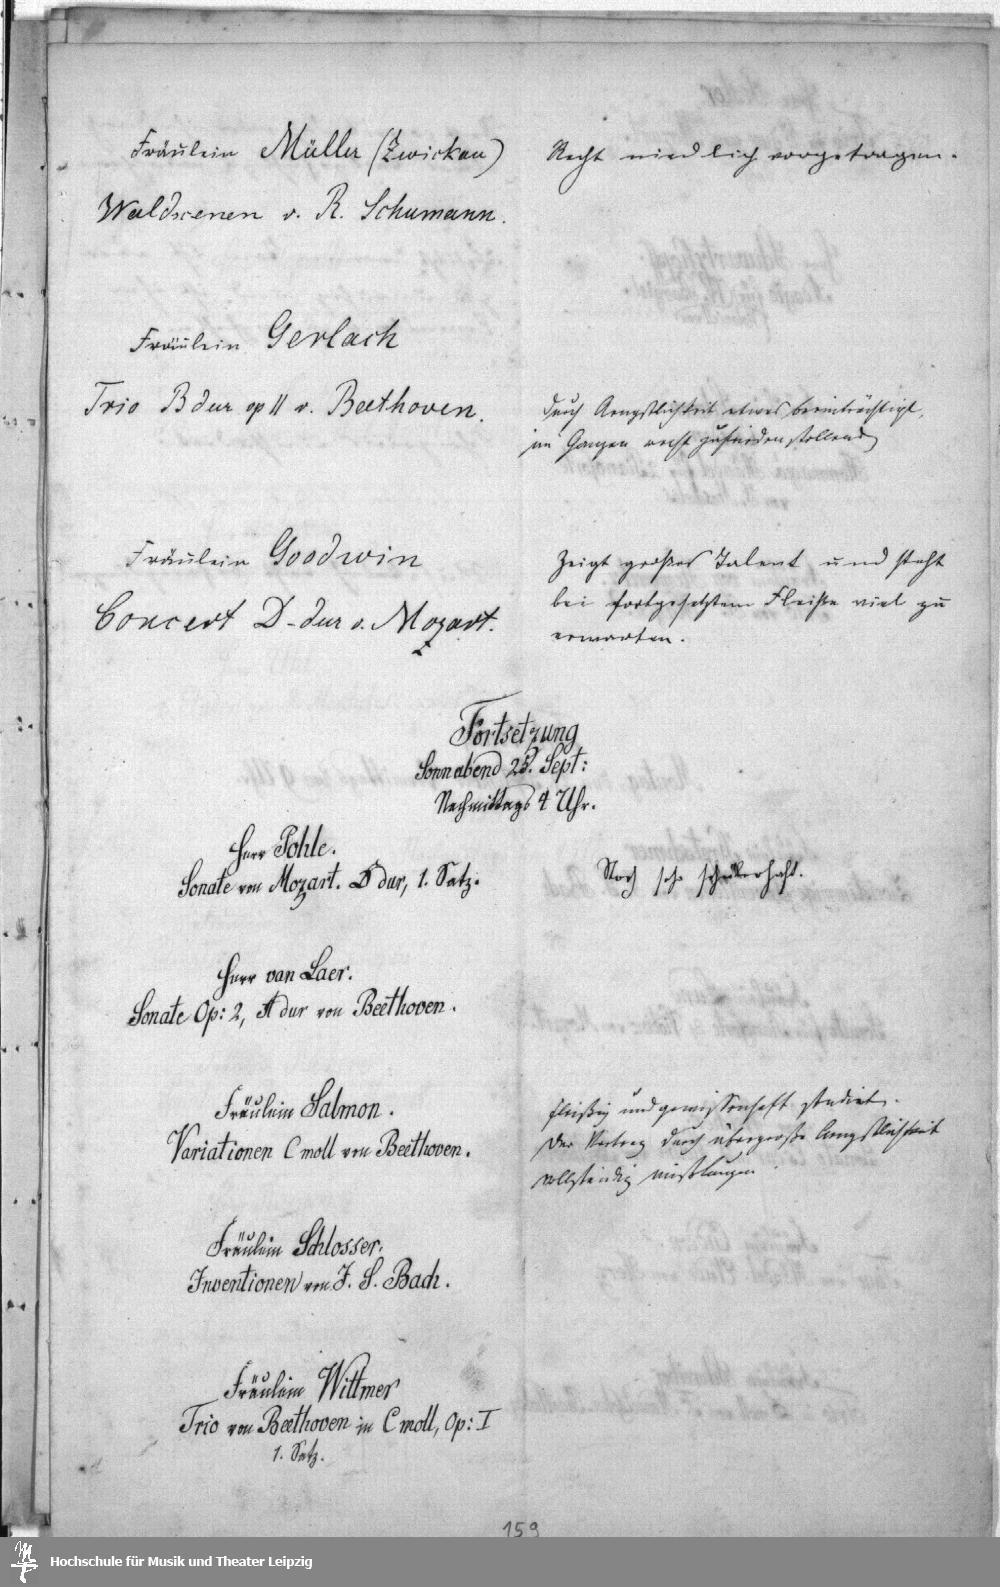 Fräulein Müller (Zwickau)
Recht niedlich vorgetragen.
Waldscenen v. R. Schumann.
Fräulein Gerlach
Trio B dur op 11 v. Beethoven.
durch Aengstlichkeit etwas beeinträchtigt,
im Ganzen recht zufriedenstellend
Fräulein Goodwin
Concert D-dur v. Mozart.
Zeigt großes Talent und steht
bei fortgesetztem Fleiße viel zu
erwarten.
Fortsetzung
Sonnabend 25. Sept:
Nachmittags 4 Uhr.
Herr Pohle.
Sonate von Mozart. D dur, 1. Satz.
Noch sehr schülerhaft.
Herr van Laer.
Sonate Op: 2, A dur von Beethoven.
Fräulein Salmon.
Variationen C moll von Beethoven.
fleißig und gewissenhaft studirt.
Der Vortrag durch übergroße Aengstlichkeit
vollständig mißlungen.
Fräulein Schlosser.
Inventionen von J. S. Bach.
Fräulein Wittmer
Trio von Beethoven in C moll, Op: I
1. Satz.
159
Hochschule für Musik und Theater Leipzig